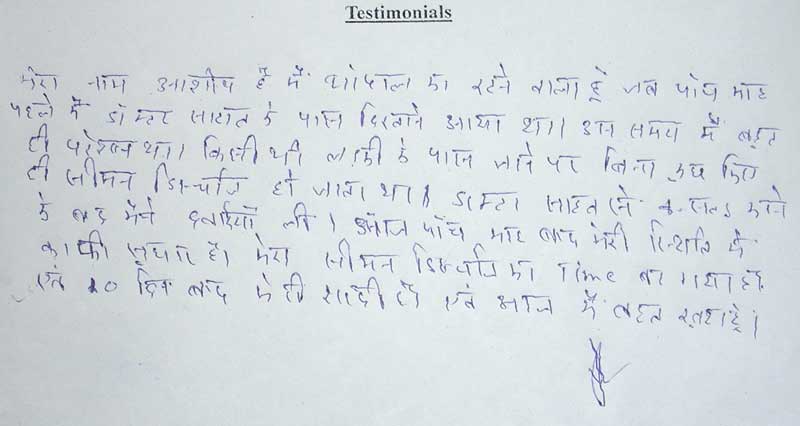 Testimonials
मेरा नाम आशीष है मैं भोपाल का रहने वाला हूं जब पाँच माह
पहले मैं डॉक्टर साहब के पास दिखाने आया था। उस समय मैं बहुत
ही परेशान था। किसी भी लड़की के पास जाने पर बिना कुछ किए
ही सीमन डिस्चार्ज हो जाता था। डाक्टर साहब से कन्सल्ट करने
के बाद मैंने दवाईयाँ ली। आज पाँच माह बाद मेरी स्थिति में
काफी सुधार है। मेरा सीमन डिस्चार्ज का Time बढ़ गया है।
एवं 20 दिन बाद मेरी शादी है एवं आज मैं बहुत खुश हूं।